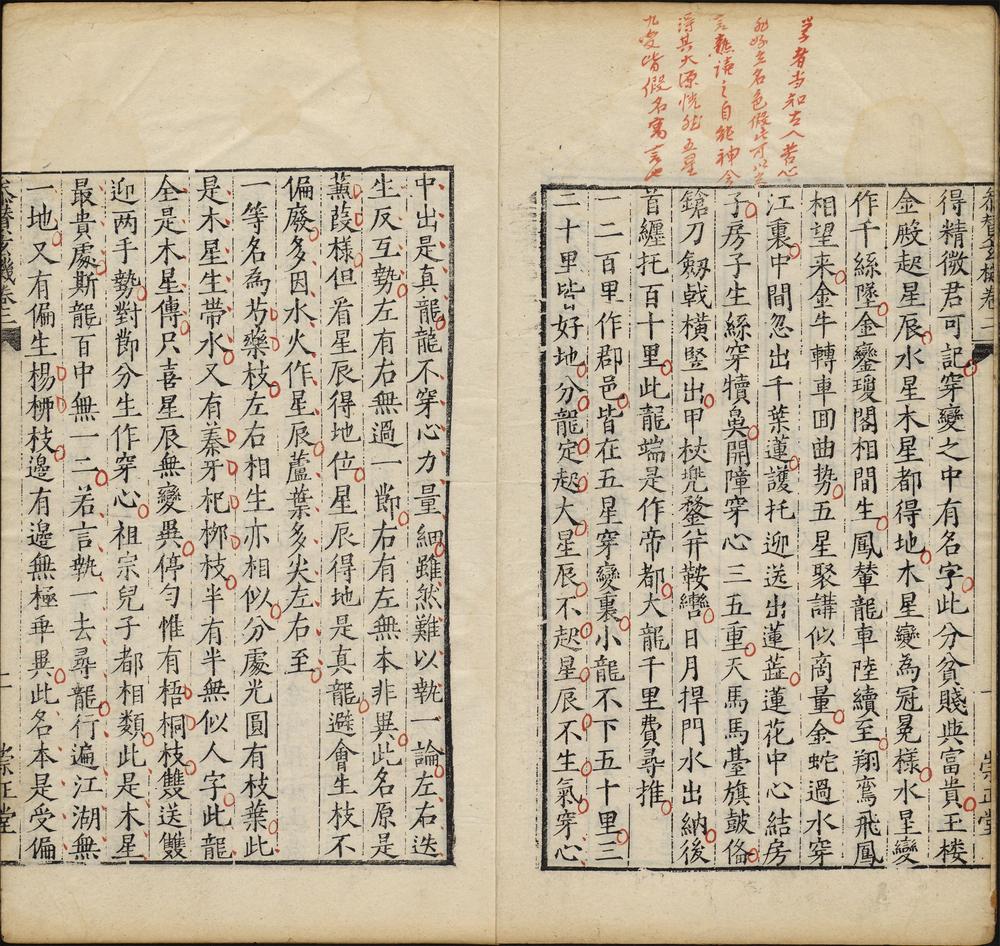 学者当知古人苦心
九变皆假名寓言也
得精微君可記穿變之中有名字此分貧賤與富貴王樓
金殿起星辰水星木星都得地木星變為冠冕樣水星變
作千絲墜金鑾瓊閣相間生鳳輦龍車陸續至翔鸞飛鳳
相望来金牛轉車囬曲势五星聚講似商量金蛇過水穿
江裏中間忽出千葉蓮護托迎送出蓮蕋蓮花中心結房
子房子生絲穿犢鼻開障穿心三五重天馬馬臺旗皷俻
鎗刀劔戟橫竪出甲杖兠鍪幷鞍轡日月捍門水出納後
首纏托百十里此龍端是作帝都大龍千里費尋推
一二百里作郡邑皆在五星穿變裏小龍不下五十里三
二十里皆好地分龍定起大星辰不起星辰不生氣穿心
中出是真龍龍不穿心力量細雖然難以執一論左右迭
生反互勢左有右無過一節右有左無本非異此名原是
蒹葭樣但看星辰得地位星辰得地是真龍避會生枝不
偏廢多因水火作星辰蘆葉多尖左右至
一等名為芍藥枝左右相生亦相似分處光圓有枝葉此
是木星生帶水又有蓁牙杷梛枝半有半無似人字此龍
全是木星傳只喜星辰無變異停勻惟有梧桐枝雙送雙
迎两手勢對節分生作穿心祖宗兒子都相類此是木星
最貴處斯龍百中無一二若言執一去尋龍行遍江湖無
一地又有偏生楊柳枝邊有邊無極乖異此名本是受偏
二
崇正堂